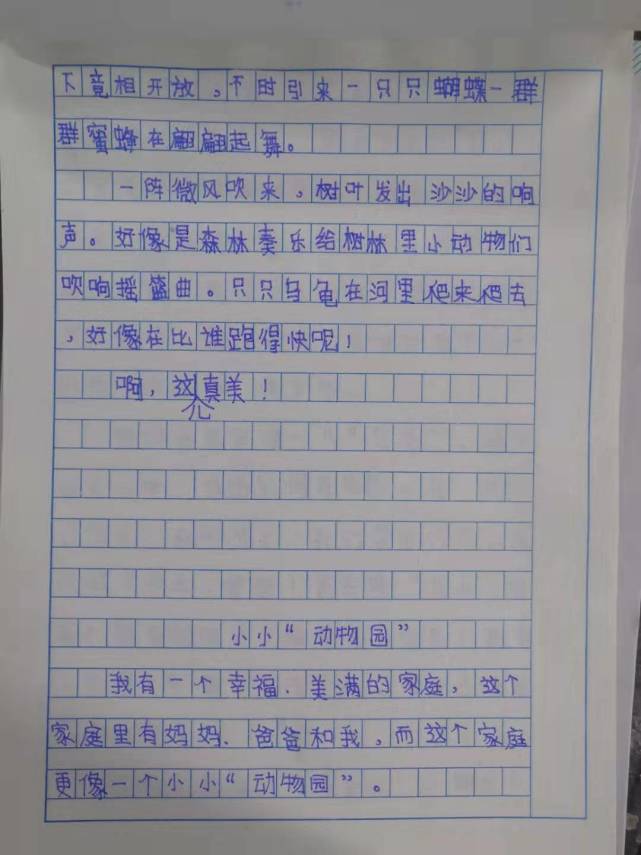 下竟相开放，不时引来一只只蝴蝶一群
群蜜蜂在翩翩起舞。
一阵微风吹来，树叶发出沙沙的响
声。好像是森林奏乐给树林里小动物们
吹响摇篮曲。只只乌龟在河里爬来爬去
，好像在比谁跑得快呢！
啊，这真美！
小小“动物园”
我有一个幸福、美满的家庭，这个
家庭里有妈妈、爸爸和我，而这个家庭
更像一个小小“动物园”。